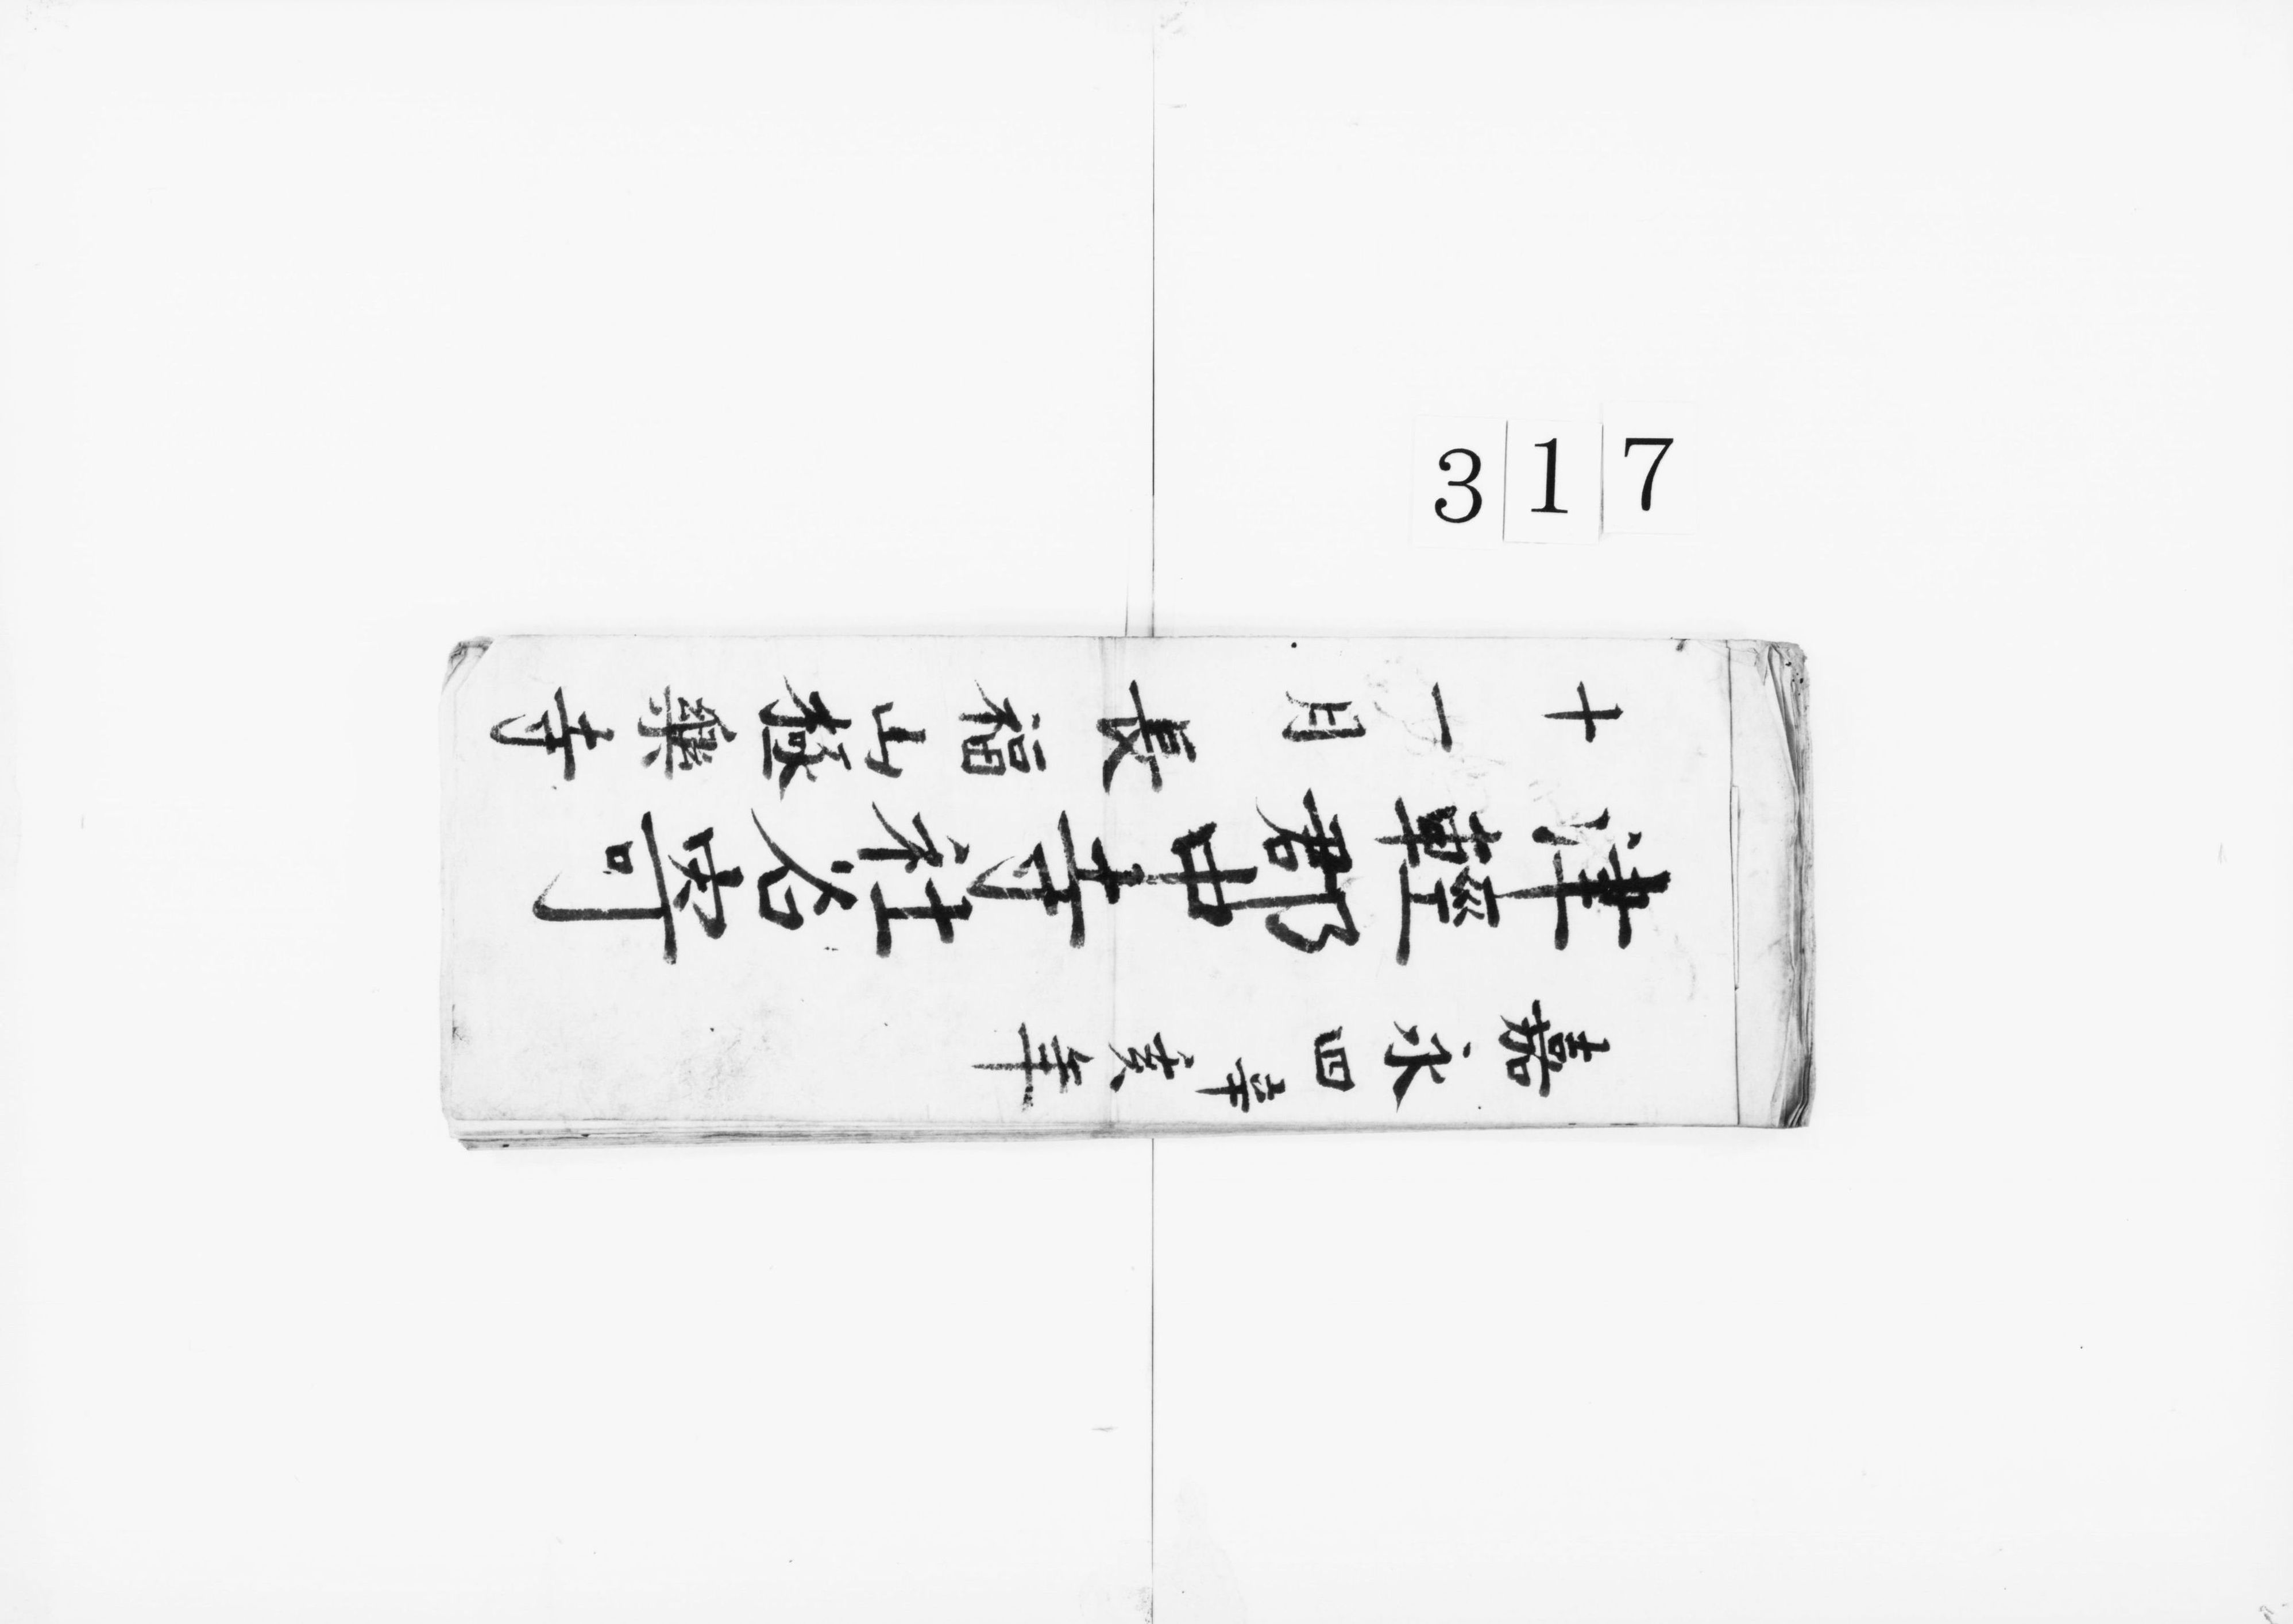 317
嘉永四辛亥年
津輕郡中寺社名寄
十一月 長福山極樂寺